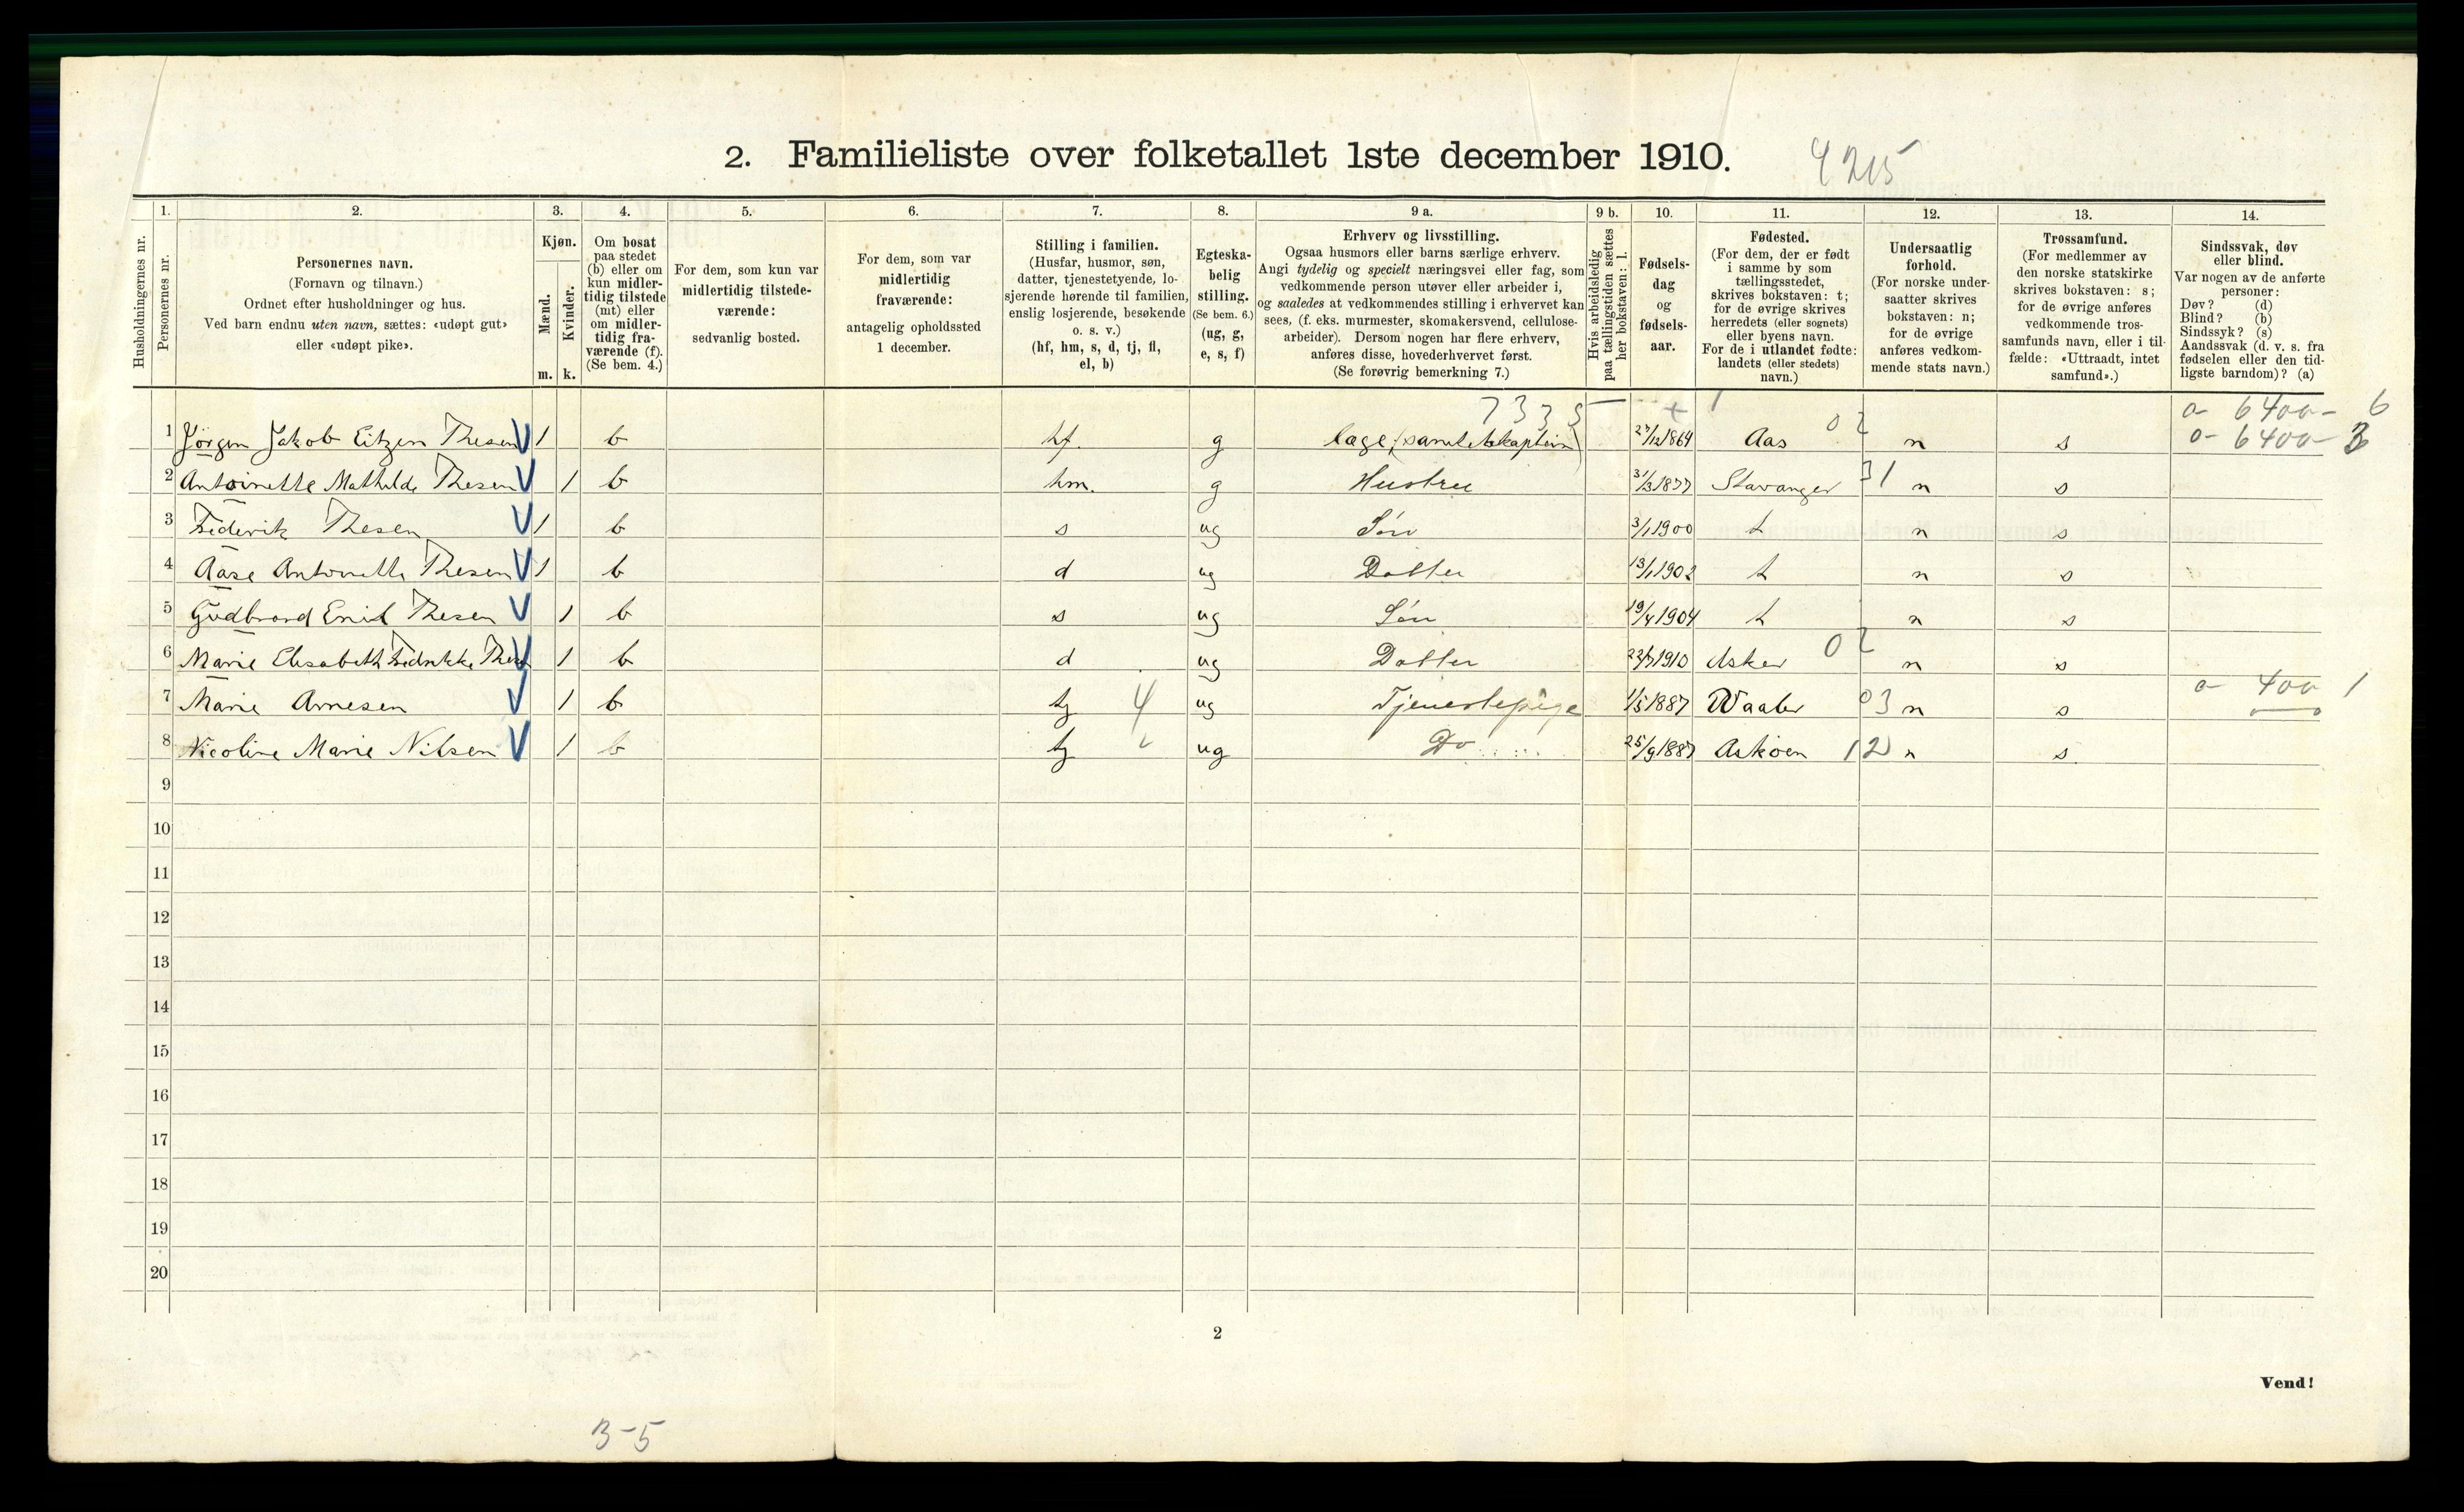 2. Familieliste over folketallet 1ste december 1910.
4215
Husholdningernes nr.
1.
Personernes nr.
2.
Personernes navn.
(Fornavn og tilnavn.)
Ordnet efter husholdninger og hus.
Ved barn endnu uten navn, sættes: «udøpt gut»
eller «udøpt pike».
3.
Kjøn.
Mænd.
Kvinder.
m. k.
4.
Om bosat
paa stedet
(b) eller om
kun midler-
tidig tilstede
(mt) eller
om midler-
tidig fra-
værende (f).
(Se bem. 4.)
5.
For dem, som kun var
midlertidig tilstede-
værende:
sedvanlig bosted.
6.
For dem, som var
midlertidig
fraværende:
antagelig opholdssted
1 december.
7.
Stilling i familien.
(Husfar, husmor, søn,
datter, tjenestetyende, lo-
sjerende hørende til familien,
enslig losjerende, besøkende
o. s. v.)
(hf, hm, s, d, tj, fl,
el, b)
8.
Egteska-
belig
stilling.
(Se bem. 6.)
(ug, g,
e, s, f)
9 a.
Erhverv og livsstilling.
Ogsaa husmors eller barns særlige erhverv.
Angi tydelig og specielt næringsvei eller fag, som
vedkommende person utøver eller arbeider i,
og saaledes at vedkommendes stilling i erhvervet kan
sees, (f. eks. murmester, skomakersvend, cellulose-
arbeider). Dersom nogen har flere erhverv,
anføres disse, hovederhvervet først.
(Se forøvrig bemerkning 7.)
9 b.
Hvis arbeidsledig
paa tællingstiden sættes
her bokstaven: l.
10.
Fødsels-
dag
og
fødsels-
aar.
11.
Fødested.
(For dem, der er født
i samme by som
tællingsstedet,
skrives bokstaven: t;
for de øvrige skrives
herredets (eller sognets)
eller byens navn.
For de i utlandet fødte:
landets (eller stedets)
navn.)
12.
Undersaatlig
forhold.
(For norske under-
saatter skrives
bokstaven: n;
for de øvrige
anføres vedkom-
mende stats navn.)
13.
Trossamfund.
(For medlemmer av
den norske statskirke
skrives bokstaven: s;
for de øvrige anføres
vedkommende tros-
samfunds navn, eller i til-
fælde: «Uttraadt, intet
samfund».)
14.
Sindssvak, døv
eller blind.
Var nogen av de anførte
personer:
Døv? (d)
Blind? (b)
Sindssyk? (s)
Aandssvak (d. v. s. fra
fødselen eller den tid-
ligste barndom)? (a)
7335 0- 6400- 6
1 Jörgen Jakob Eitzen Thesen V 1 b hf. g læge, (sanitetskaptein) 27/12 1864 Aas 02 n s 0- 6400- 3
2 Antoinette Mathilde Thesen V 1 b hm. g Hustru 31/3 1877 Stavanger 31 n s
3 Frederik Thesen V 1 b s ug Sön 3/1 1900 t n s
4 Aase Antoinette Thesen V 1 b d ug Datter 13/1 1902 t n s
5 Gudbrand Emil Thesen V 1 b s ug Sön 19/4 1904 t n s
6 Marie Elisabeth Fredrikke Thesen V 1 b d ug Datter 22/7 1910 Asker 02 n s
7 Marie Arnesen V 1 b tj 4 ug Tjenestepige 1/5 1887 Vaaler 03 n s 0- 400 1
8 Nicoline Marie Nilsen V 1 b tj ug Do 25/9 1887 Asköen 12 n s
9
10
11
12
13
14
15
16
17
18
19
20
2
Vend!
3-5